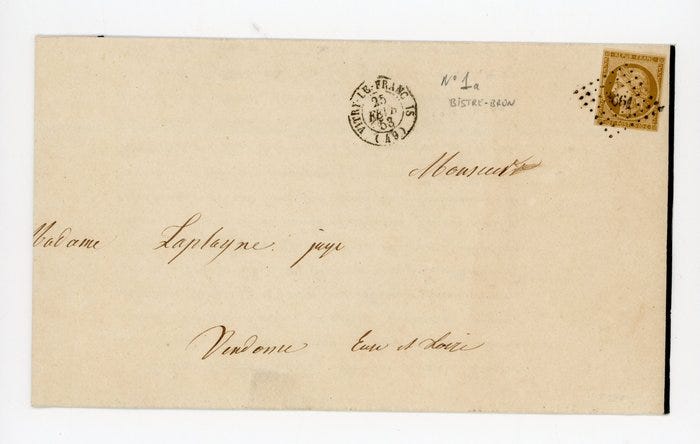 REPUB. FRANC.
VITRY-LE-FRANÇAIS
25
FEVR.
53
(49)
N° 1a
BISTRE-BRUN
Monsieur
Madame Laplagne juge
Vendome Eure et Loire